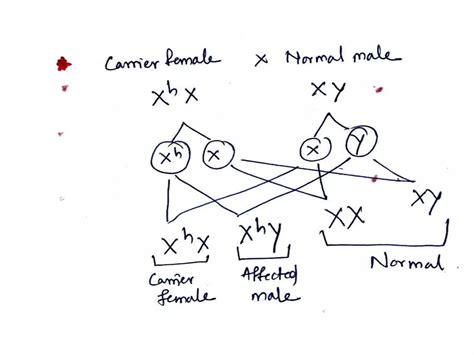 Carrier female x Normal male
XʰX XY
Xʰ X X Y
XʰX XʰY XX XY
Carrier female Affected male Normal